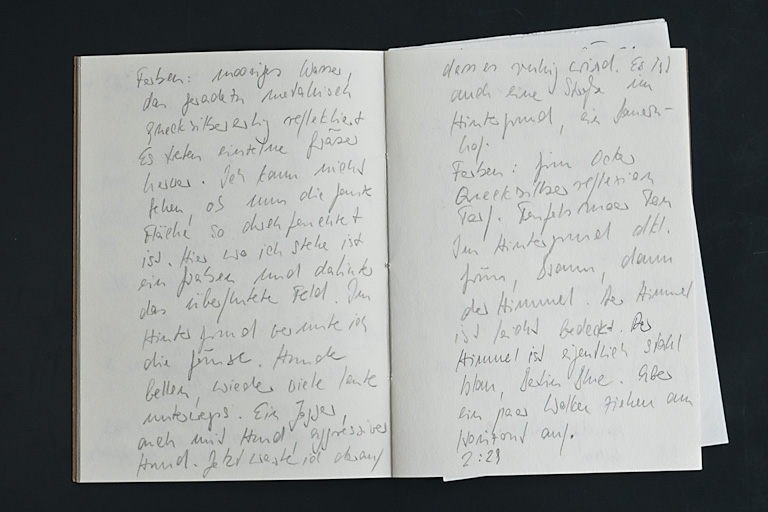 Farben: mooriges Wasser,
das geradezu metallisch
quecksilberartig reflektiert
Es treten einzelne Gräser
hervor. Ich kann nicht
sehen, ob nun die ganze
Fläche so durchfeuchtet
ist. Hier wo ich stehe ist
ein Graben und dahinter
das überflutete Feld. Im
Hintergrund vermute ich
die Hunde
bellen, wieder viele Leute
unterwegs. Ein Jogger,
auch mit Hund, aggressiver
Hund. Jetzt warte ich darauf
dass es ruhig wird. Es ist
auch eine Straße im
Hintergrund, ein Bauern-
hof.
Farben: grün Ocker
Quecksilberreflexion
Torf. Teufelsmoor Torf
Im Hintergrund dkl.
grün, braun, dann
der Himmel. Der Himmel
ist leicht bedeckt. Der
Himmel ist eigentlich stahl
blau, Berlin Blue. Aber
ein paar Wolken ziehen am
Horizont auf.
2:29